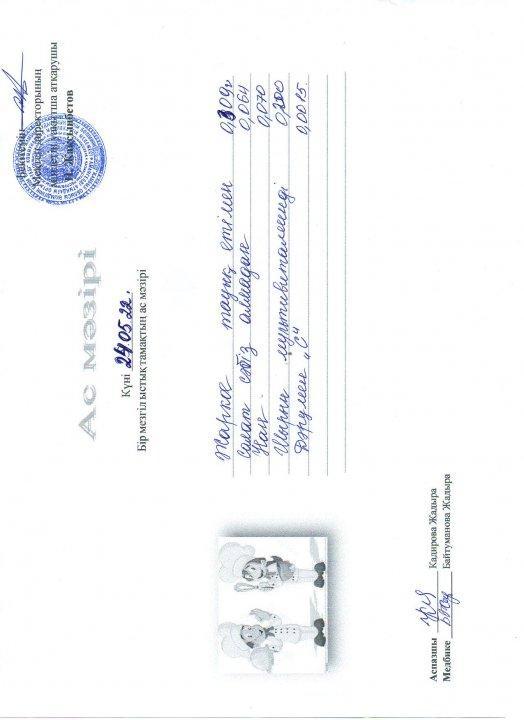 Бекітемін
Мектеп директорының
міндетін уақытша атқарушы
Н. Жақсынбетов
Ас мәзірі
Күні 24.05.22.
Бір мезгіл ыстық тамақтың ас мәзірі
Жаркое тауық етімен 0,309г
Салат сәбіз алмадан 0,064
Нан. 0,070
Шырын мультивитаминді 0,200
Дәрумен "С" 0,0015.
Аспазшы Кадирова Жадыра
Медбике Байтуманова Жадыра